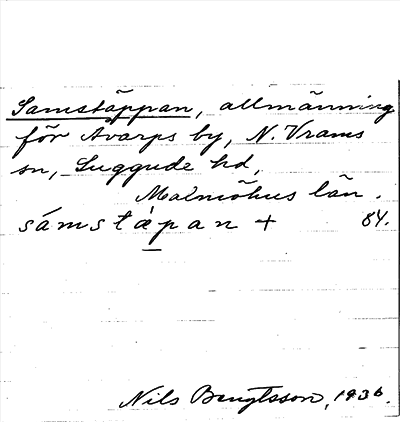 Samstäppan, allmänning
för Åvarps by, N. Vrams
sn, Luggude hd,
Malmöhus län.
sámstápan + 84.
Nils Bengtsson, 1936.